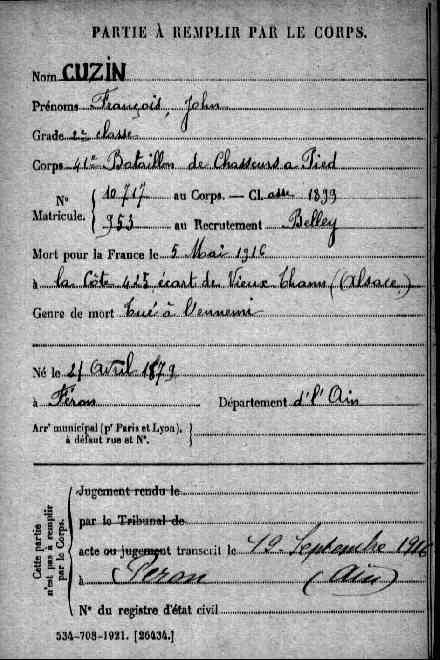 PARTIE À REMPLIR PAR LE CORPS.
Nom CUZIN
Prénoms François, John
Grade 2e classe
Corps 41e Bataillon de Chasseurs a Pied
N° Matricule. { 10717 au Corps. — Cl.asse 1899
953 au Recrutement Belley
Mort pour la France le 5 Mai 1916
à la Côte 425 écart de Vieux Thann (Alsace)
Genre de mort Tué à l'ennemi
Né le 21 Avril 1879
à Péron Département d l'Ain
Arrt municipal (pr Paris et Lyon), à défaut rue et N°. }
Cette partie n'est pas à remplir par le Corps. {
Jugement rendu le
par le Tribunal de
acte ou jugement transcrit le 19 Septembre 1916
à Péron (Ain)
N° du registre d'état civil
534-708-1921. [26434.]